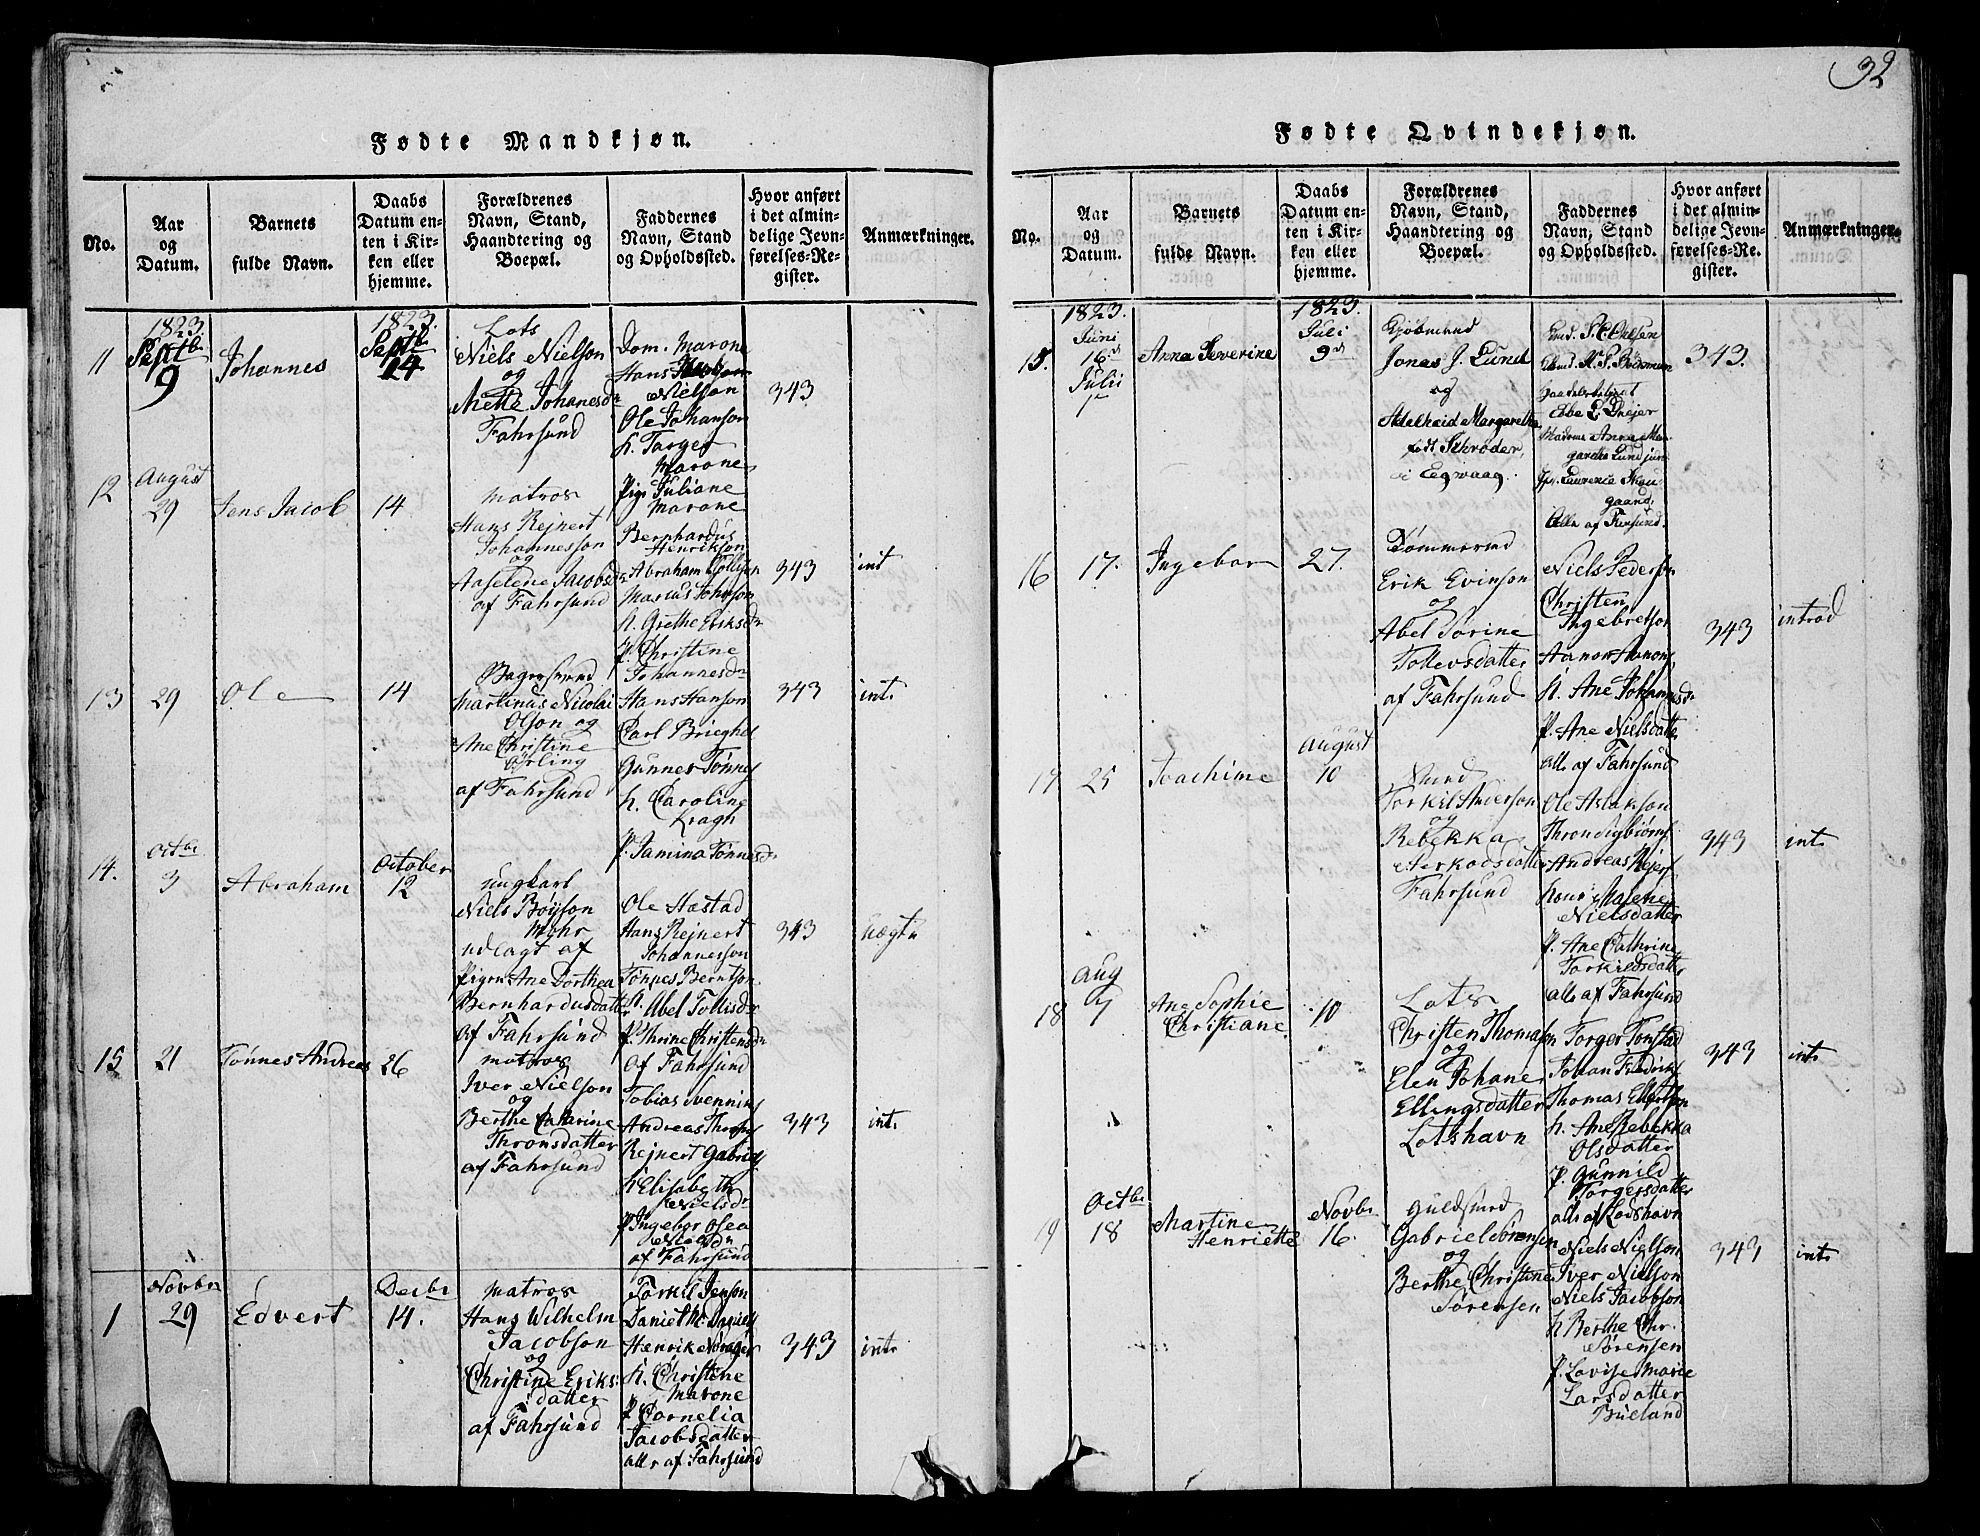 32
Fødte Mandkjøn.
No.
Aar
og
Datum.
Barnets
fulde Navn.
Daabs
Datum en-
ten i Kir-
ken eller
hjemme.
Forældrenes
Navn, Stand,
Haandtering og
Boepæl.
Faddernes
Navn, Stand
og Opholdssted.
Hvor anført
i det almin-
delige Jevn-
førelses-Re-
gister.
Anmærkninger.
11
1823.
Septbr
9
Johannes
1823.
Septbr
14
Lots
Niels Nielson
og
Mette Johanesdr
Fahrsund
Dom. Marone
Hans
Nielson
Ole Johanson
h. Torger
Marones
Pig. Juliane
Marone
343
12
August
29
Jens Jacob
14
matros
Hans Rejnert
Johannesson
og
Aaselene Jacobsdr
af Fahrsund
Bernhardus
Henrikson
Abraham Tollisen
Marcus Johnson
h. Grethe Eriksdr
p. Christine
Johannesdr
343
int
13
29
Ole
14
Bagersvend
Martinus Nicolai
Olson og
Ane Christine
Ørling
af Fahrsund
Hans Hanson
Carl Brieghel
Gunnes Tønnes
h. Caroline
Kragh
p. Jamina Tønnesdr
343
int.
14.
Octbr
3
Abraham
October
12
ungkarl
Niels Boyson
Mohr
udlagt af
Pigen Ane Dorthea
Bernhardusdatter
af Fahrsund
Ole Hastad
Hans Rejnert
Johannesson
Tønnes Berntson
h. Abel Tollisdr
p. Thrine Christensdr
af Fahrsund
343
uægte
15
21
Tønnes Andreas
26
matros
Iver Nielson
og
Berthe Catarine
Thronsdatter
af Fahrsund
Tobias Svennings
Andreas Throns
Rejnert Gabriels
h Elisabeth
Nielsdr
p Ingebor Olea
Nielsdr
af Fahrsund
343
int.
1
Novbr
29
Edvert
Decbr
14.
matros
Hans Wilhelm
Jacobson
og
Christine Eriks:
datter
af Fahrsund
Torkil Jenson
Daniel M. Daniels
Henrik Norager
h. Christene
Marone
p Cornelia
Jacobsdatter
alle af Fahrsund
343
int.
Fødte Qvindekjøn.
No.
Aar
og
Datum.
Barnets
fulde Navn.
Daabs
Datum en-
ten i Kir-
ken eller
hjemme.
Forældrenes
Navn, Stand,
Haandtering og
Boepæl.
Faddernes
Navn, Stand
og Opholdssted.
Hvor anført
i det almin-
delige Jevn-
førelses-Re-
gister.
Anmærkninger.
15.
1823.
Juni
16d
Julii
Anna Severine
1823.
Juli
9d
Kjøbmand
Jonas J. Lund
og
Adelheid Margaretha
født Schrøder,
i Egwaag.
Ebbe L Drejer
Madme Anna Mar
garetha Lund
Laurencie
gaard
Alle af Farsund.
343.
16
17.
Ingebor
27.
Tømmermd
Erik Evinson
og
Abel Sørine
Tollevsdatter
af Fahrsund
Niels Pederson
Christen
Ingebretson
Aanon Aanons,
h. Ane Johannesdr
p. Ane Nielsdatter
alle af Fahrsund
343
introd
17
25
Joachime
August
10
Torkil Anderson
og
Rebekka
Aerkodsdatter
Fahrsund
Ole Aslakson
Thrond
Andreas Rejers
Malene
Nielsdatter
p. Ane Cathrine
Torkildsdatter
alle af Fahrsund
343
int.
18
Aug
7
Ane Sophie
Christiane
10
Lots
Christen Thomason
og
Elen Johane
Ellingsdatter
Lotshavn
Torger Tonstad
Johan Fredriks
Thomas Ellertsen
h. Ane Rebekka
Olsdatter
p. Gunnild
Torgersdatter
alle af Lodshavn
343
int.
19
Octbr
18
Martine
Henriette
Novbr
16.
Guldsmed
Gabriel Sørensen
og
Berthe Christine
Sørensen
Niels Nielson
Iver Nielson
Niels Jacobson
h Berthe Chr.
Sørensen
p. Lovise Marie
Larsdatter
Büeland
343
int.